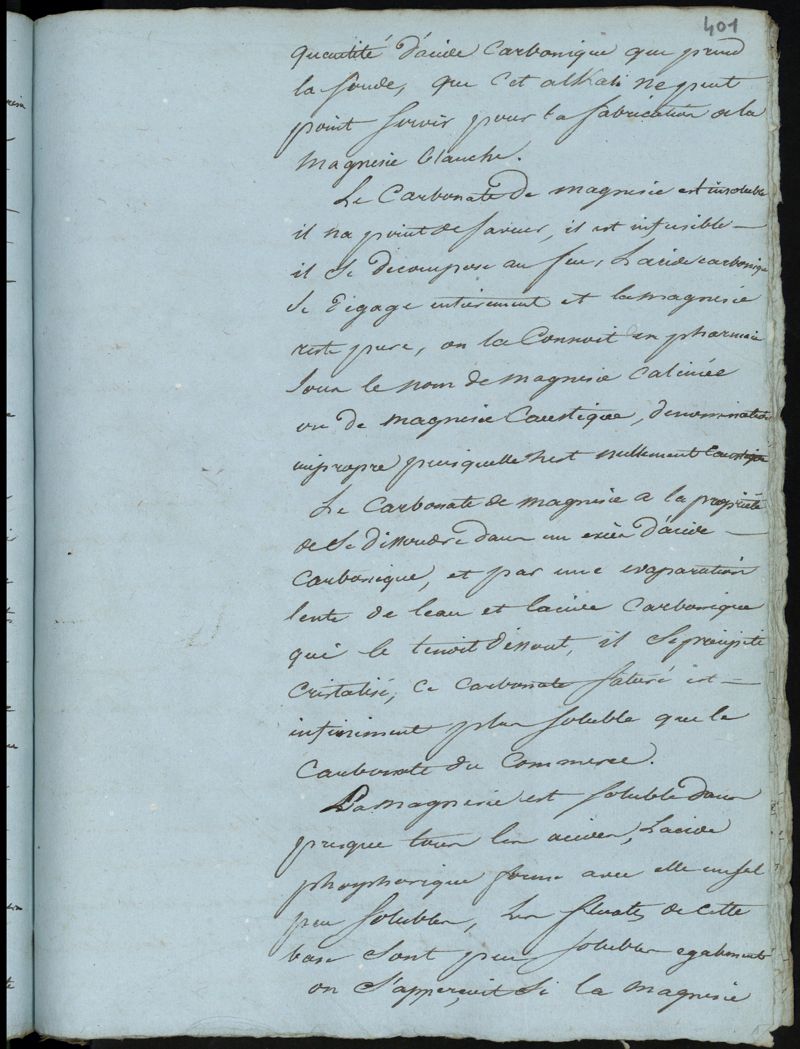 401
quantité d'acide carbonique que prend
la soude, que cet alkali ne peut
point servir pour la fabrication de la
magnesie blanche.
Le Carbonate de magnesie est insoluble
il na point de saveur, il est infusible —
il se decompose au feu, Lacide carbonique
se degage entierement et la magnesie
reste pure, on la Connoit en pharmacie
sous le nom de magnesie calcinée
ou de magnesie Caustique, denomination
impropre puisquelle nest nullement Caustique
Le Carbonate de magnesie a la propriété
de se dissoudre dans un exces d'acide —
carbonique, et par une evaporation
lente de leau et lacide carbonique
qui le tenoit dissout, il se précipite
cristalisé, ce carbonate saturé est —
infiniment plus soluble que le
Carbonate du Commerce.
La magnesie est soluble dans
presque tous les acides, Lacide
phosphorique forme avec elle un sel
peu solubles, Les fluates de cette
base sont peu solubles egalement
on s'apperçoit si la magnesie